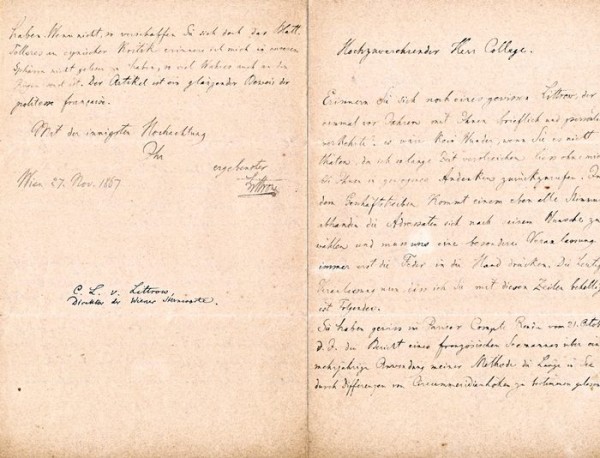 haben. Wenn nicht, so verschaffen Sie sich doch das Blatt.
Tolleres an cynischer Kritik erinnere ich mich in unseren
Sphären nicht gelesen zu haben, so viel Wahres auch an der
ist. Der Artikel ist ein glänzender Beweis der
politesse française.
Mit der innigsten Hochachtung
Ihr
ergebenster
Littrow
Wien 27. Nov. 1867
C. L. v. Littrow,
Direktor der Wiener Sternwarte.
Hochzuverehrender Herr College.
Erinnern Sie sich noch eines gewissen Littrow, der
einmal vor Jahren mit Ihnen brieflich und persönlich
verkehrte? es wäre kein Wunder, wenn Sie es nicht
thäten, da ich so lange Zeit verstreichen liess ohne mich
bei Ihnen in geneigtes Andenken zurückzurufen. In
dem Geschäftsleben kommt einem eben alle
abhanden die Adressaten sich nach seinem Wunsche zu
wählen und muss uns eine besondere Veranlassung
immer erst die Feder in die Hand drücken. Die heutige
Veranlassung nun, dass ich Sie mit diesen Zeilen behellige
ist folgende.
Sie haben gewiss im Pariser Compte Rendu vom 21. Oktob
d. J. den Bericht eines französischen Seemannes über eine
mehrjährige Anwendung meiner Methode die Länge in See
durch Differenzen von Circummeridianhöhen zu bestimmen gelesen